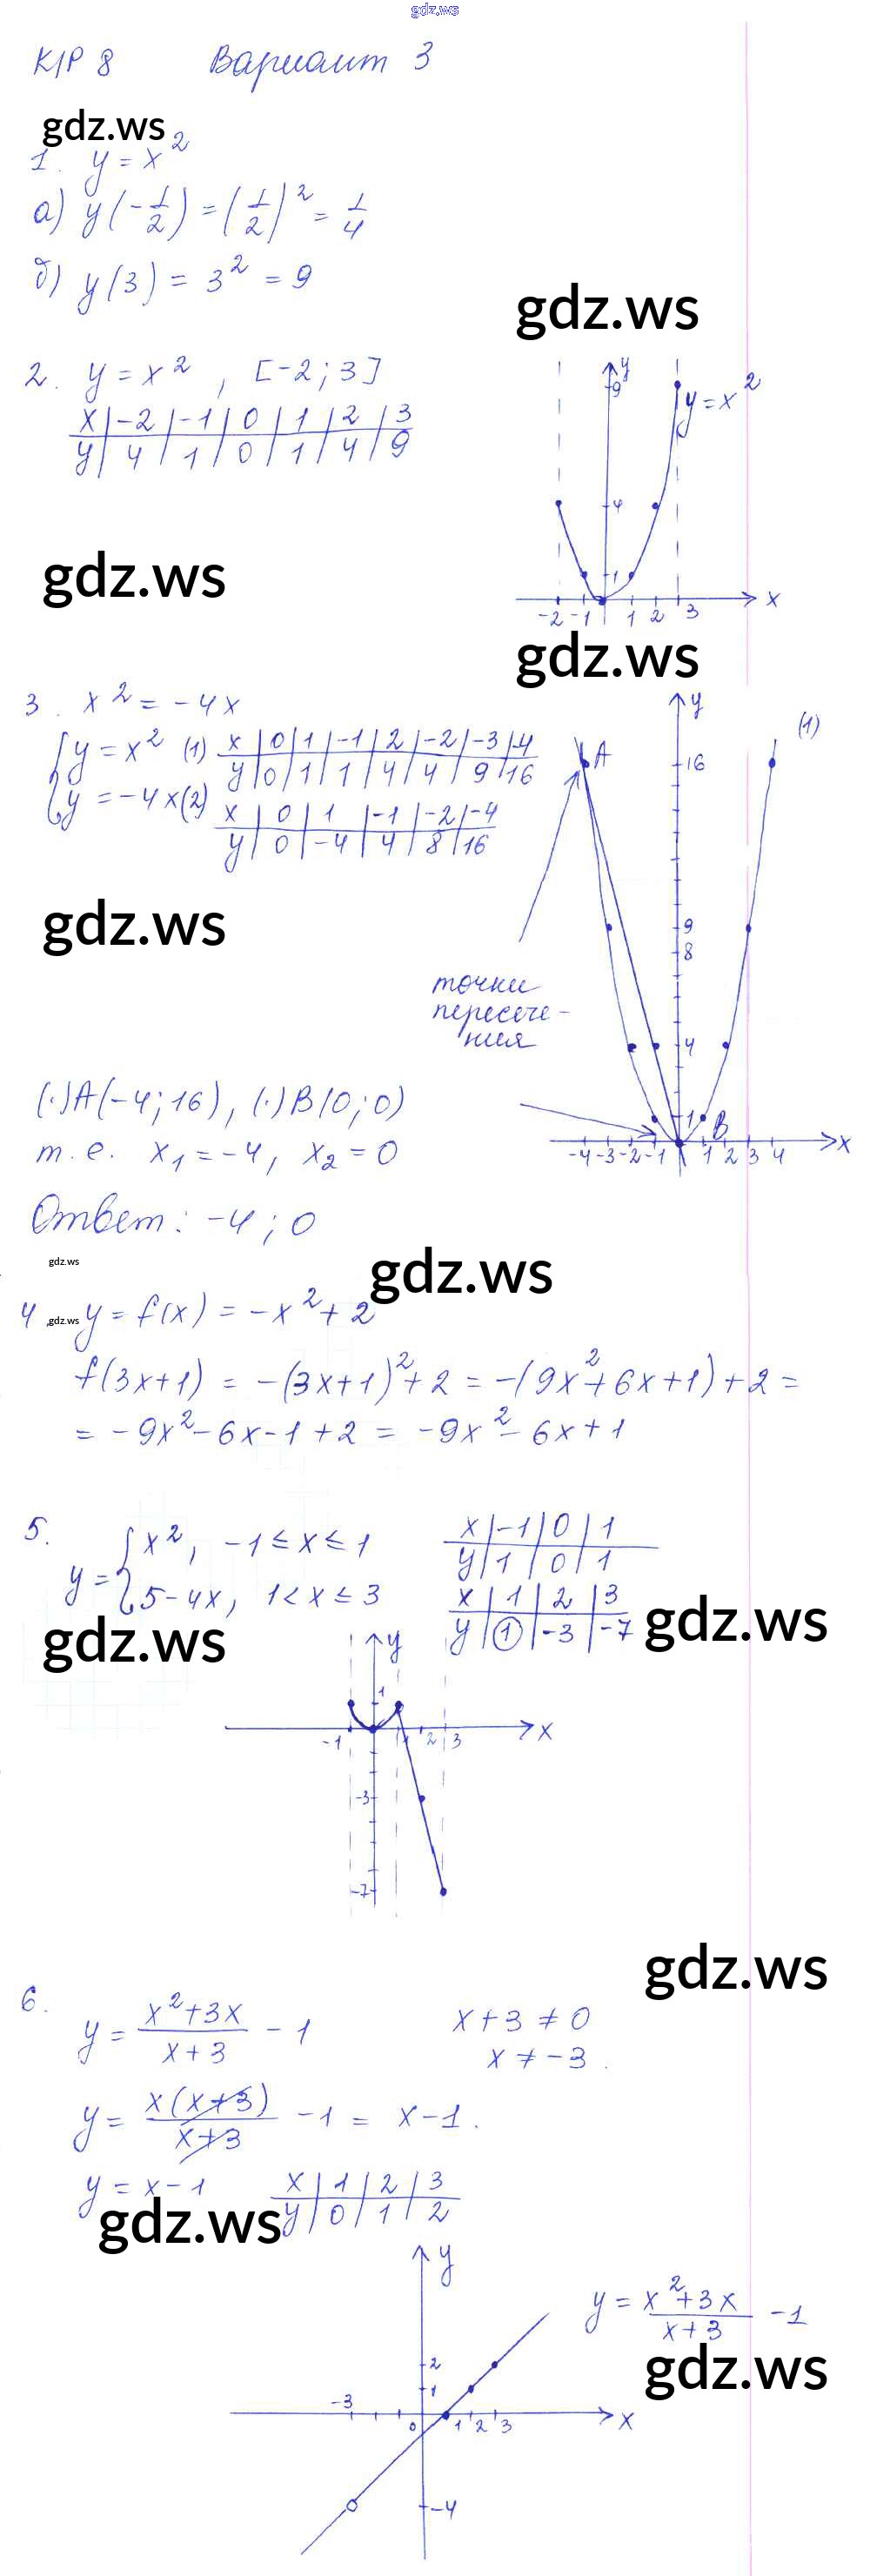 gdz.ws
К/Р 8 Вариант 3
gdz.ws
1. y = x²
а) y(-1/2) = (1/2)² = 1/4
б) y(3) = 3² = 9
gdz.ws
2. y = x², [-2; 3]
x | -2 | -1 | 0 | 1 | 2 | 3
y | 4 | 1 | 0 | 1 | 4 | 9
y
9
y = x²
4
1
-2 -1 1 2 3 x
gdz.ws
gdz.ws
3. x² = -4x
{ y = x² (1)
x | 0 | 1 | -1 | 2 | -2 | -3 | -4
y | 0 | 1 | 1 | 4 | 4 | 9 | 16
{ y = -4x (2)
x | 0 | 1 | -1 | -2 | -4
y | 0 | -4 | 4 | 8 | 16
y
(1)
A 16
9
8
4
1 B
-4 -3 -2 -1 1 2 3 4 x
gdz.ws
точки
пересече-
ния
(·)A(-4; 16), (·)B(0; 0)
т.е. x₁ = -4, x₂ = 0
Ответ: -4; 0
gdz.ws
gdz.ws
4. y = f(x) = -x² + 2
gdz.ws
f(3x+1) = -(3x+1)² + 2 = -(9x² + 6x + 1) + 2 =
= -9x² - 6x - 1 + 2 = -9x² - 6x + 1
5. y = { x², -1 ≤ x ≤ 1
5 - 4x, 1 < x ≤ 3
x | -1 | 0 | 1
y | 1 | 0 | 1
x | 1 | 2 | 3
y | 1 | -3 | -7
gdz.ws
gdz.ws
y
1
-1 1 2 3 x
-3
-7
gdz.ws
6. y = (x² + 3x)/(x + 3) - 1 x + 3 ≠ 0
x ≠ -3.
y = x(x+3)/(x+3) - 1 = x - 1.
y = x - 1
x | 1 | 2 | 3
y | 0 | 1 | 2
gdz.ws
y
y = (x² + 3x)/(x + 3) - 1
gdz.ws
2
1
-3 0 1 2 3 x
-4